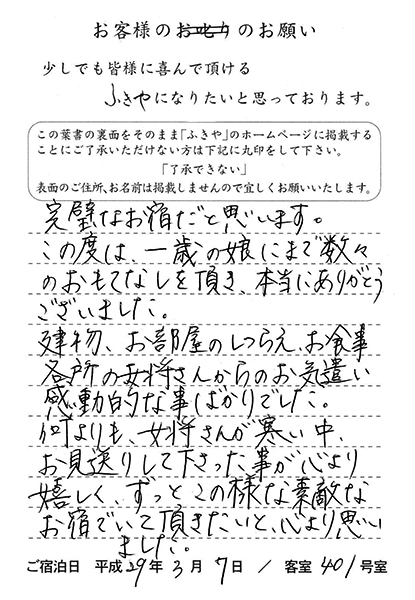 お客様のお叱りのお願い
少しでも皆様に喜んで頂ける
ふきやになりたいと思っております。
この葉書の裏面をそのまま「ふきや」のホームページに掲載する
ことにご了承いただけない方は下記に丸印をして下さい。
「了承できない」
表面のご住所、お名前は掲載しませんので宜しくお願いいたします。
完璧なお宿だと思います。
この度は、一歳の娘にまで数々
のおもてなしを頂き、本当にありがとう
ございました。
建物、お部屋のしつらえ、お食事
各所の女将さんからのお気遣い
感動的な事ばかりでした。
何よりも、女将さんが寒い中、
お見送りして下さった事が心より
嬉しく、ずっとこの様な素敵な
お宿でいて頂きたいと、心より思い
ました。
ご宿泊日 平成29年3月7日 / 客室 401号室